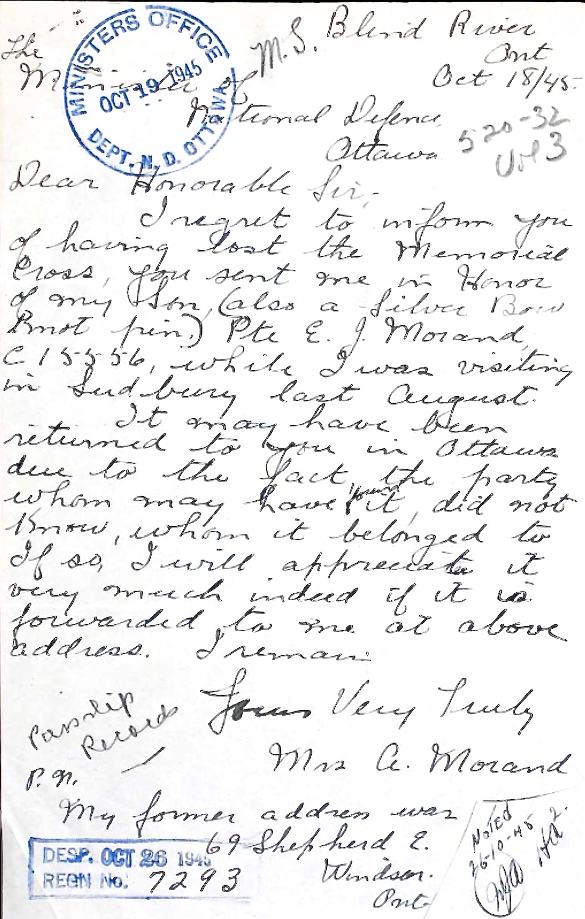 M.S. Blind River
Ont
The Oct 18/45.
Minister of
MINISTERS OFFICE
OCT 19 1945
DEPT. N. D. OTTAWA
National Defence
Ottawa 520-32
Vol 3
Dear Honorable Sir,-
I regret to inform you
of having lost the Memorial
Cross, you sent me in Honor
of my Son, (also a Silver Bow
Knot pin.) Pte E. J. Morand,
C 15556, while I was visiting
in Sudbury last August.
It may have been
returned to you in Ottawa
due to the fact the party
whom may have found it, did not
know, whom it belonged to
If so, I will appreciate it
very much indeed if it is
forwarded to me at above
address. I remain
Yours Very Truly
Mrs A. Morand
Records
P.N.
My former address was
69 Shepherd E.
Windsor.
Ont
DESP. OCT 26 1945
REGN No. 7293
NOTED
26-10-45